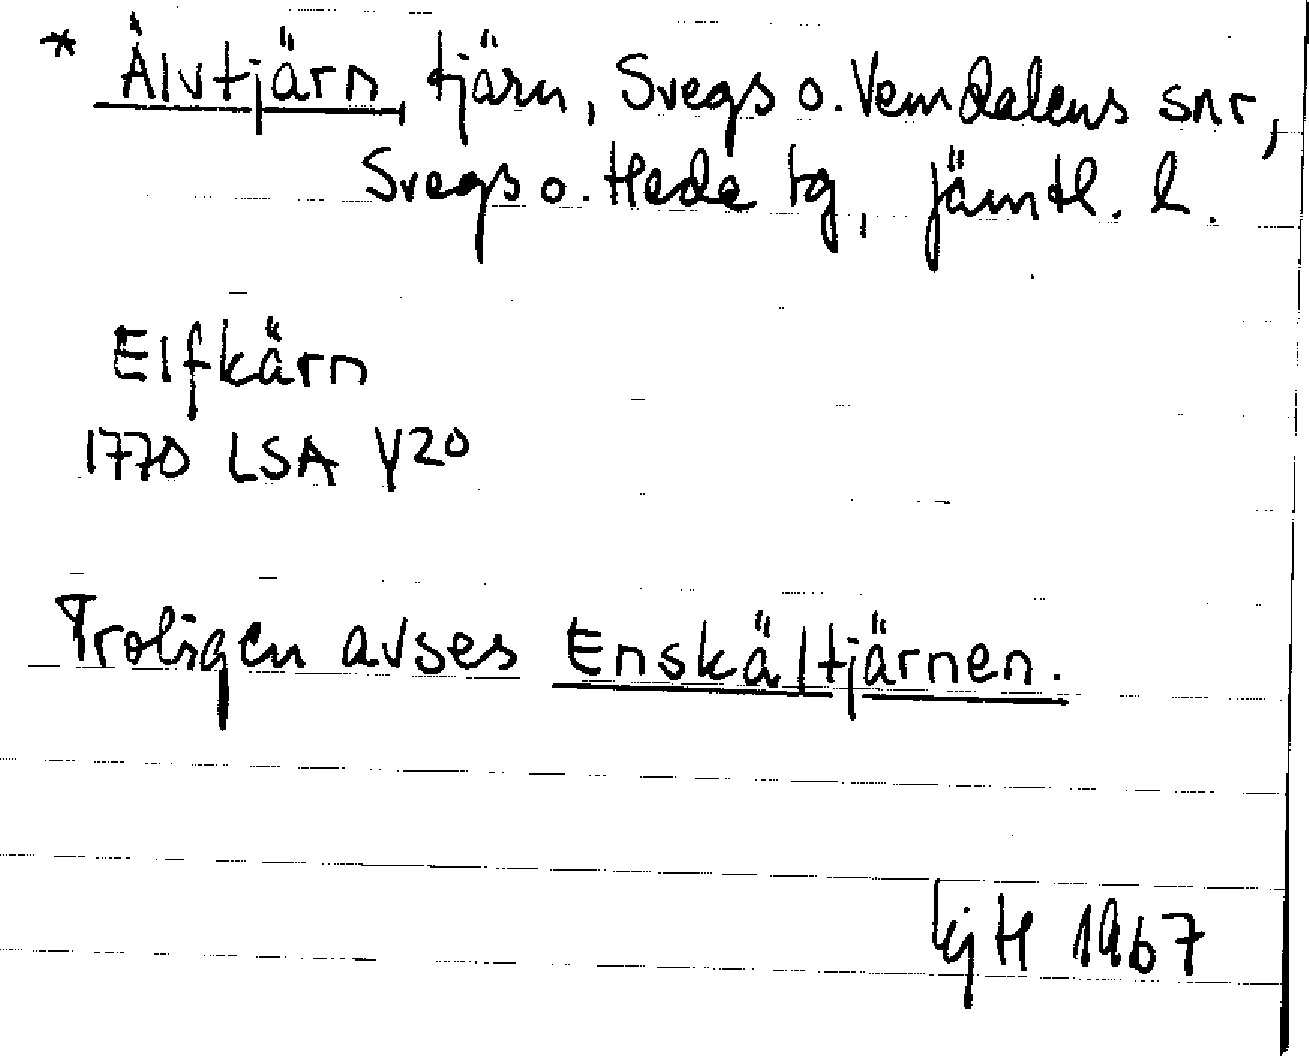 * Älvtjärn, tjärn, Svegs o. Vemdalens snr,
Svegs o. Hede tg, Jämtl. l.
Elfkärn
1770 LSA Y20
Troligen avses Enskältjärnen.
kjH 1967